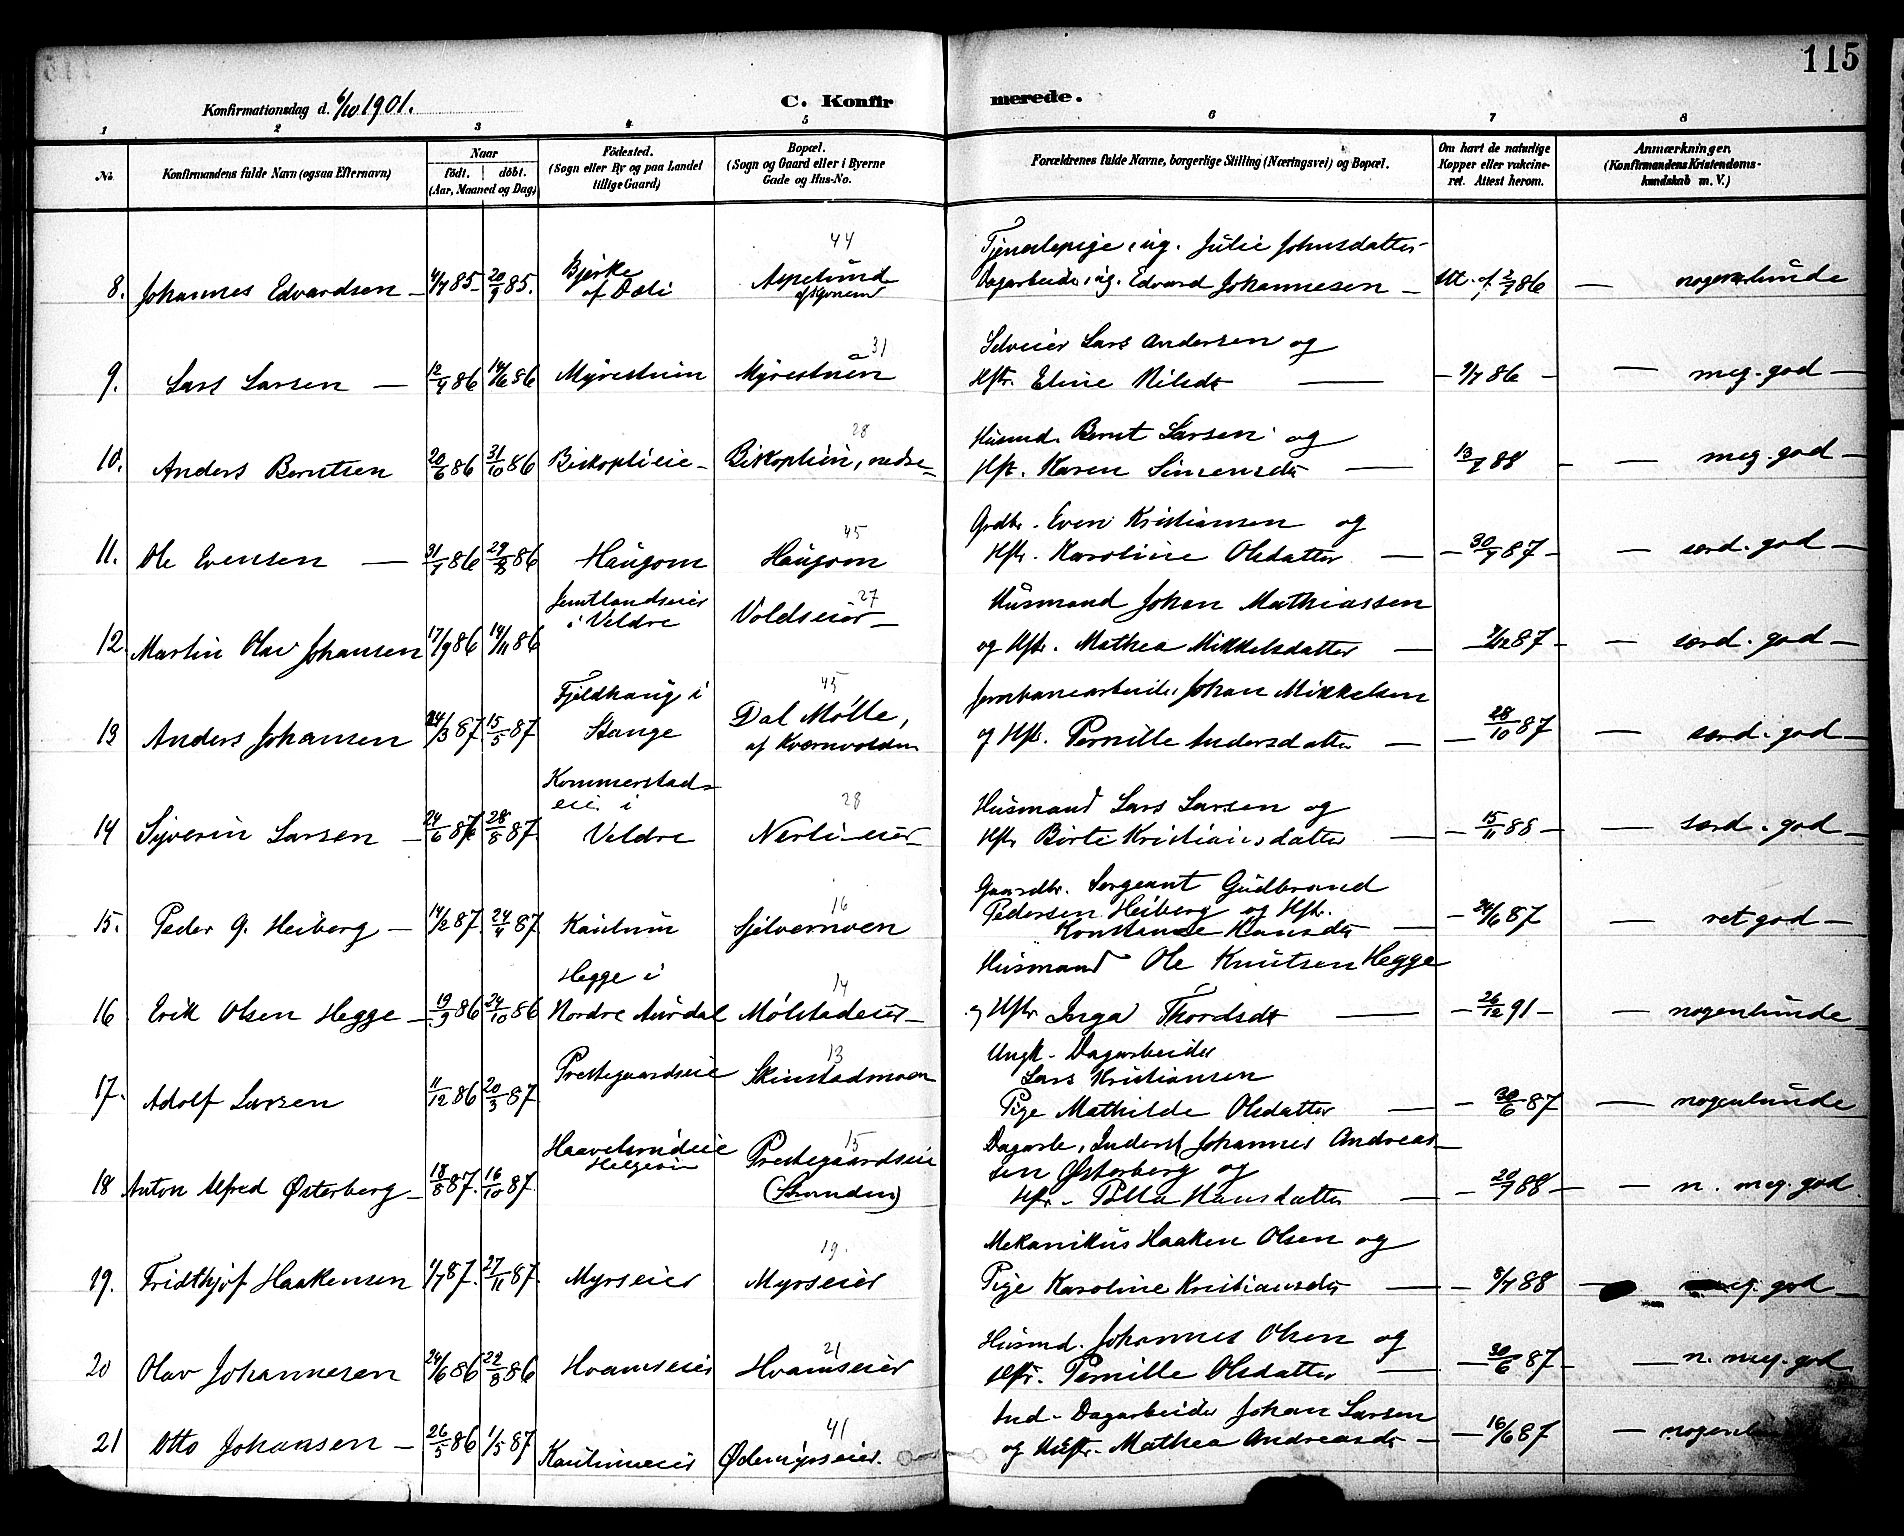 115
Konfirmationsdag d. 6/10 1901.
C. Konfirmerede.
1 2 3 4 5 6 7 8
No. Konfirmandens fulde Navn (ogsaa Efternavn) Naar födt. döbt. (Aar, Maaned og Dag) Födested. (Sogn eller By og paa Landet tillige Gaard) Bopæl. (Sogn og Gaard eller i Byerne Gade og Hus-No. Forældrenes fulde Navne, borgerlige Stilling (Næringsvei) og Bopæl. Om havt de naturlige Kopper eller vakcineret. Attest herom. Anmærkninger. (Konfirmandens Kristendomskundskab m. V.)
44
Tjenestepige, ug. Julie Johnsdatter
8. Johannes Edvardsen 4/7 85 20/9 85. Bjerke af Dæli Aspelund Dagarbeider, ug. Edvard Johannesen nogenlunde
31
Selveier Lars Andersen og
9. Lars Larsen 12/4 86 14/6 86 Myrestuen Myrestuen Hstr. Eline Nilsdt 9/7 86 meg. god
28
Husmd. Bernt Larsen og
10. Anders Berntsen 20/6 86 31/10 86 Biskoplieie Biskoplien, nedre Hst. Karen Simensdt 13/7 88 meg. god
45
Grdbr. Even Kristiansen og
11. Ole Evensen 31/7 86 29/8 86 Haugom Haugom Hstr. Karoline Olsdatter 30/7 87 særd. god
27
Husmand Johan Mathiassen
12 Martin Olav Johansen 17/9 86 14/11 86 Jemtlandseier i Veldre Voldseier og Hstr. Mathea Mikkelsdatter 87 særd. god
45
Jernbanearbeider Johan Mikkelsen
13 Anders Johansen 24/3 87. 15/5 87 Fjeldhaug i Stange Dal Mölle, af Kværnvolden og Hstr. Pernille Andersdatter 28/10 87 særd. god
28
Husmand Lars Larsen og
14 Syverin Larsen 24/6 87 28/8 87. Kommerstadeie i Veldre Nerlieier Hstr Börte Kristiansdatter 15/11 88 særd. god
16
Gaardbr. Sergeant Gudbrand
15. Peder G. Heiberg 14/2 87. 24/4 87. Kautum Sjelvernoen Pedersen Heiberg og Hstr. Konstanse Hansdt 24/6 87 ret god
14
Husmand Ole Knutsen Hegge
16 Erik Olsen Hegge 19/9 86 24/10 86 Hegge i Nordre Aurdal Mölstadeier og Hstr Inga Thordsdt 26/12 91 nogenlunde
13
Ungk. Dagarbeider Lars Kristiansen
17. Adolf Larsen 11/12 86 20/3 87 Prestegaardseie Skinstadmoen Pige Mathilde Olsdatter 30/6 87 nogenlunde
15
Dagarb. Inderst Johannes Andreassen Østerberg og
18 Anton Alfred Østerberg 18/8 87. 16/10 87. Prestegaardseie Hstr. Hansdatter 20/7 88 n. meg. god
19.
Mekanikus Haaken Olsen og
19. Fridthjof Haakensen 1/7 87. 27/11 87. Myrseier Myrseier Pige Karoline Kristiansdt 8/7 88 meg. god
21
Husmd. Johannes Olsen og
20 Olav Johannesen 24/6 86 22/8 86 Hvamseier Hvamseier Hstr. Pernille Olsdatter 30/6 87 n. meg. god
41
Ind. Dagarbeider Johan Larsen
21 Otto Johansen 26/5 86 1/5 87 Kautumeier Ødemyrseier. og Hustr. Mathea Andreasdt 16/6 87